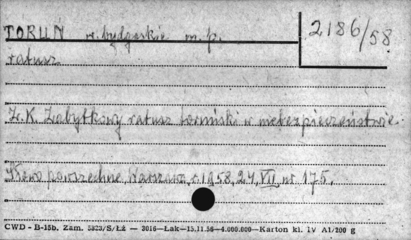 TORUŃ w. bydgoskie m. p.
2186/58
ratusz
Z.K. Zabytkowy ratusz toruński w niebezpieczeństwie.
Słowo powszechne Warszawa, r. 1958, 24, VII, nr 175.
CWD - B-15b. Zam. 5823/S/Łż — 3016—Łak—15.11.56—4.000.000—Karton kl. IV A1/200 g